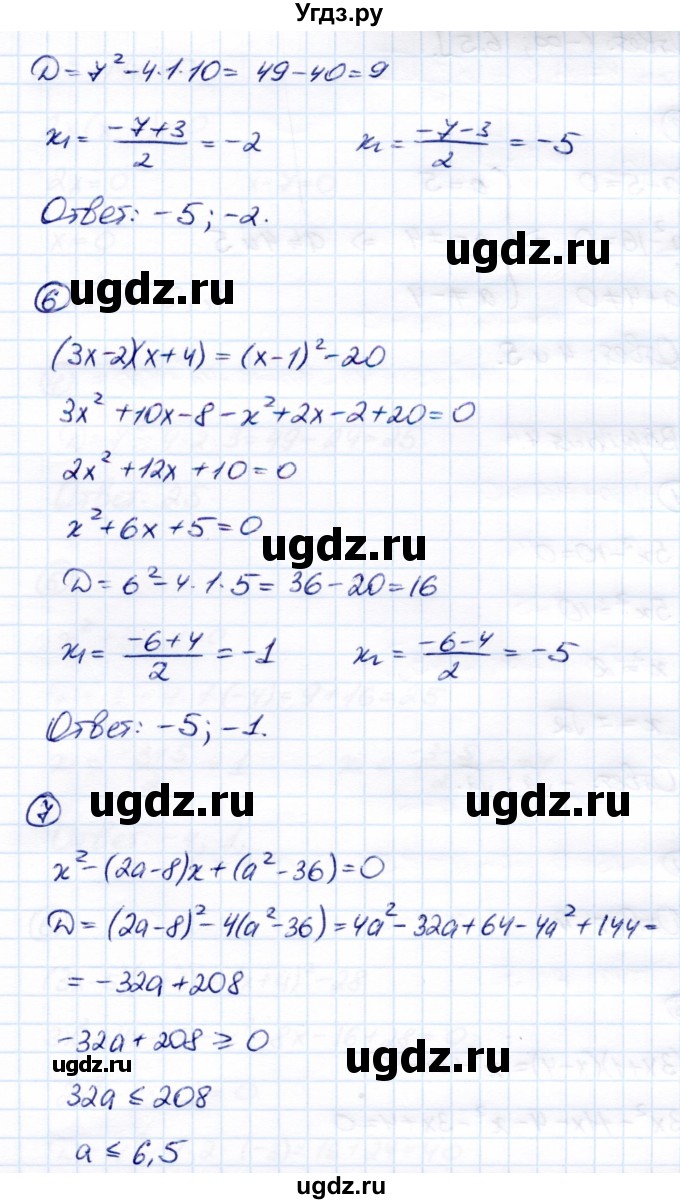 Угдз.ру
D = 7² - 4·1·10 = 49 - 40 = 9
x₁ = (-7+3)/2 = -2    x₂ = (-7-3)/2 = -5
Ответ: -5; -2.
ugdz.ru ugdz.ru
6
(3x-2)(x+4) = (x-1)² - 20
3x² + 10x - 8 - x² + 2x - 2 + 20 = 0
2x² + 12x + 10 = 0
x² + 6x + 5 = 0
ugdz.ru
D = 6² - 4·1·5 = 36 - 20 = 16
x₁ = (-6+4)/2 = -1    x₂ = (-6-4)/2 = -5
Ответ: -5; -1.
7
ugdz.ru ugdz.ru
x² - (2a-8)x + (a² - 36) = 0
D = (2a-8)² - 4(a² - 36) = 4a² - 32a + 64 - 4a² + 144 =
= -32a + 208
-32a + 208 ≥ 0
ugdz.ru ugdz.ru
32a ≤ 208
a ≤ 6,5
ugdz.ru